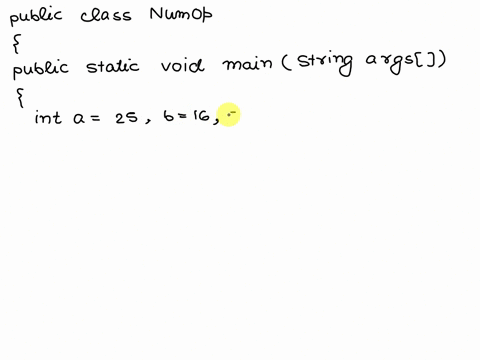 public class NumOp
{
public static void main (string args[])
{
int a = 25, b = 16,